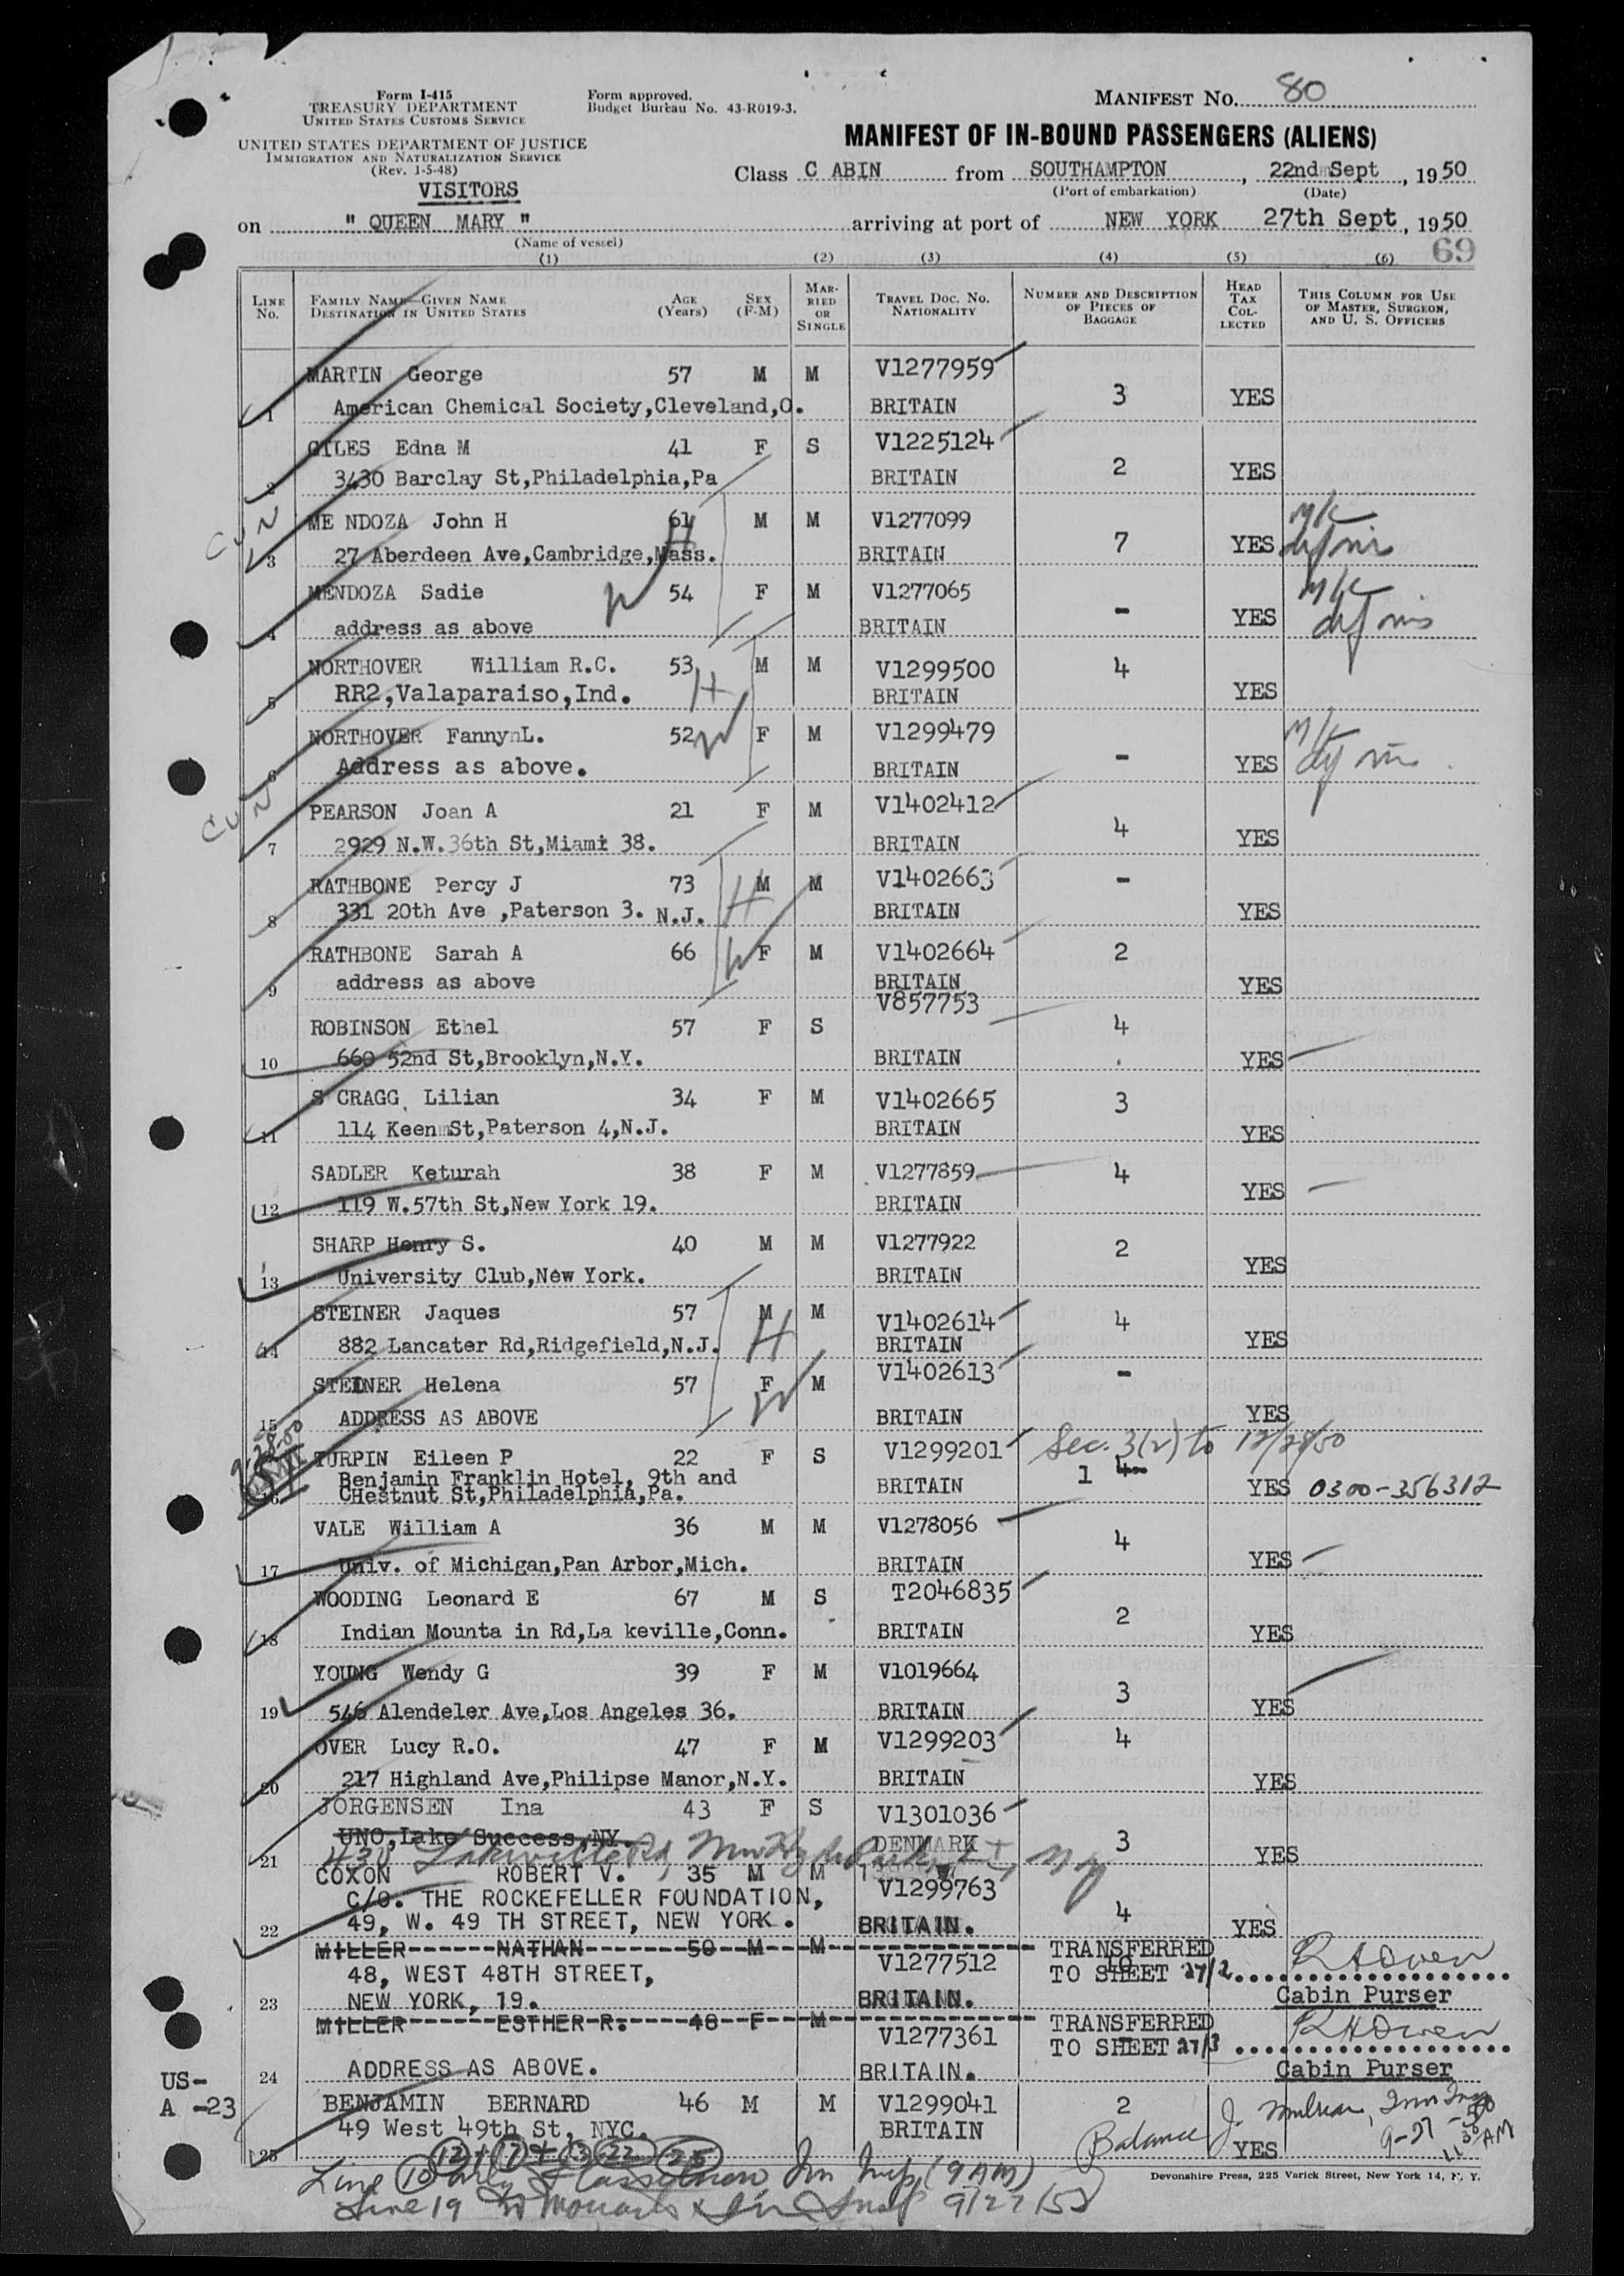 Form I-415
TREASURY DEPARTMENT
UNITED STATES CUSTOMS SERVICE
UNITED STATES DEPARTMENT OF JUSTICE
IMMIGRATION AND NATURALIZATION SERVICE
(Rev. 1-5-48)
VISITORS
Form approved.
Budget Bureau No. 43-R019-3.
MANIFEST NO. 80
MANIFEST OF IN-BOUND PASSENGERS (ALIENS)
Class C ABIN from SOUTHAMPTON, 22nd Sept, 1950
(Port of embarkation) (Date)
on " QUEEN MARY " arriving at port of NEW YORK 27th Sept, 1950
(Name of vessel)
69
(1) (2) (3) (4) (5) (6)
LINE No. FAMILY NAME—GIVEN NAME DESTINATION IN UNITED STATES AGE (Years) SEX (F-M) MARRIED OR SINGLE TRAVEL DOC. NO. NATIONALITY NUMBER AND DESCRIPTION OF PIECES OF BAGGAGE HEAD TAX COLLECTED THIS COLUMN FOR USE OF MASTER, SURGEON, AND U. S. OFFICERS
MARTIN George 57 M M V1277959
1 American Chemical Society,Cleveland,O. BRITAIN 3 YES
GILES Edna M 41 F S V1225124
2 3430 Barclay St,Philadelphia,Pa BRITAIN 2 YES
ME NDOZA John H 61 M M V1277099
3 27 Aberdeen Ave,Cambridge,Mass. BRITAIN 7 YES
MENDOZA Sadie 54 F M V1277065
4 address as above BRITAIN - YES
NORTHOVER William R.C. 53 M M V1299500 4
5 RR2,Valaparaiso,Ind. BRITAIN YES
NORTHOVER Fanny L. 52 F M V1299479
6 Address as above. BRITAIN - YES
PEARSON Joan A 21 F M V1402412
7 2929 N.W.36th St,Miami 38. BRITAIN 4 YES
RATHBONE Percy J 73 M M V1402663 -
8 331 20th Ave ,Paterson 3. N.J. BRITAIN YES
RATHBONE Sarah A 66 F M V1402664 2
9 address as above BRITAIN YES
ROBINSON Ethel 57 F S V857753 4
10 660 52nd St,Brooklyn,N.Y. BRITAIN YES
S CRAGG Lilian 34 F M V1402665 3
11 114 Keen St,Paterson 4,N.J. BRITAIN YES
SADLER Keturah 38 F M V1277859 4
12 119 W.57th St,New York 19. BRITAIN YES
SHARP Henry S. 40 M M V1277922 2
13 University Club,New York. BRITAIN YES
STEINER Jaques 57 M M V1402614 4
14 882 Lancater Rd,Ridgefield,N.J. BRITAIN YES
STEINER Helena 57 F M V1402613 -
15 ADDRESS AS ABOVE BRITAIN YES
TURPIN Eileen P 22 F S V1299201 Sec. 3(2) to 12/28/50
Benjamin Franklin Hotel, 9th and BRITAIN 1 YES 0300-356312
16 CHestnut St,Philadelphia,Pa.
VALE William A 36 M M V1278056 4
17 Univ. of Michigan,Pan Arbor,Mich. BRITAIN YES
WOODING Leonard E 67 M S T2046835 2
18 Indian Mounta in Rd,La keville,Conn. BRITAIN YES
YOUNG Wendy G 39 F M V1019664 3
19 546 Alendeler Ave,Los Angeles 36. BRITAIN YES
OVER Lucy R.O. 47 F M V1299203 4
20 217 Highland Ave,Philipse Manor,N.Y. BRITAIN YES
JORGENSEN Ina 43 F S V1301036
UNO,Lake Success,NY. DENMARK 3 YES
21 Lakeville Rd, New Hyde Park, L I, N Y
COXON ROBERT V. 35 M M V1299763
C/O. THE ROCKEFELLER FOUNDATION,
22 49, W. 49 TH STREET, NEW YORK. BRITAIN. 4 YES
MILLER NATHAN 50 M M TRANSFERRED
48, WEST 48TH STREET, V1277512 TO SHEET 27/2 R H Owen
23 NEW YORK, 19. BRITAIN. Cabin Purser
MILLER ESTHER R. 48 F M TRANSFERRED
V1277361 TO SHEET 27/3 R H Owen
24 ADDRESS AS ABOVE. BRITAIN. Cabin Purser
US-
A -23
BENJAMIN BERNARD 46 M M V1299041 2
25 49 West 49th St, NYC. BRITAIN YES
Balance J.
9-27
AM
12 + 17 + 13 22 25
Line 10 (9 AM)
Line 19 9/27/50
Devonshire Press, 225 Varick Street, New York 14, N. Y.